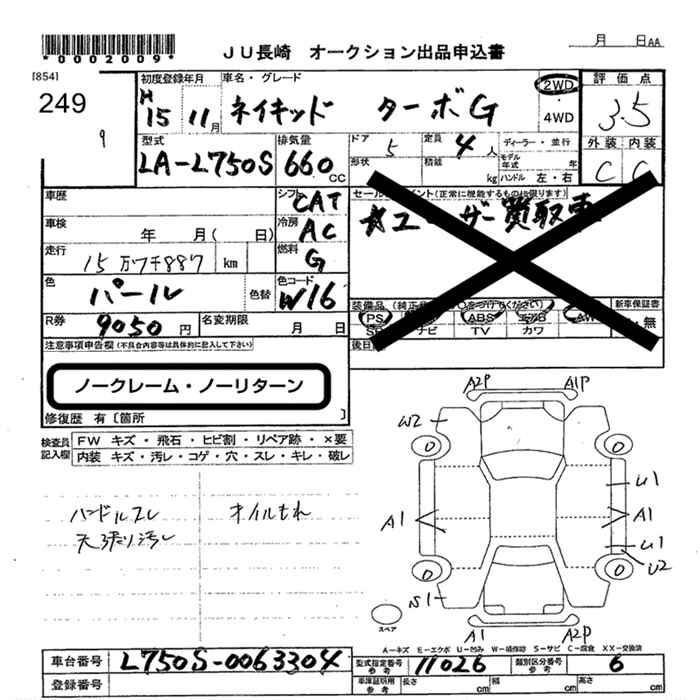 *0002009*
JU長崎 オークション出品申込書
月 日AA
[854]
249
初度登録年月
車名・グレード
評価点
H15 11月
ネイキッド ターボG
2WD
4WD
3.5
型式
排気量
ドア 5
定員 4人
ディーラー・並行
外装 内装
LA-L750S
660cc
形状
積載 kg
モデル年式 年
ハンドル 左・右
C C
車歴
シフト CAT
セールスポイント(正常に機能するものに限ります)
車検 年 月( 日)
冷房 AC
★ユーザー買取車
走行 15万7千887 km
燃料 G
色 パール
色替
色コード W16
装備品(純正品に○をつけてください)
新車保証書
PS
ABS
AW
無
ナビ
TV
カワ
R券 9050円
名変期限 月 日
後日
注意事項申告欄(不具合内容等は具体的に記入して下さい)
ノークレーム・ノーリターン
修復歴 有〔箇所 〕
検査員記入欄
FW キズ・飛石・ヒビ割・リペア跡・×要
内装 キズ・汚レ・コゲ・穴・スレ・キレ・破レ
ハンドルスレ
オイルもれ
天張り汚レ
A2P A1P
W2
0 0
U1
A1 A1
U1
U2
0 0
S1
A1 A2P
スペア
A-キズ E-エクボ U-凹み W-補修跡 S-サビ C-腐食 XX-交換済
車台番号 L750S-0063304
型式指定番号 参考 11026
類別区分番号 参考 6
登録番号
車庫証明用 参考
長さ cm
幅 cm
高さ cm